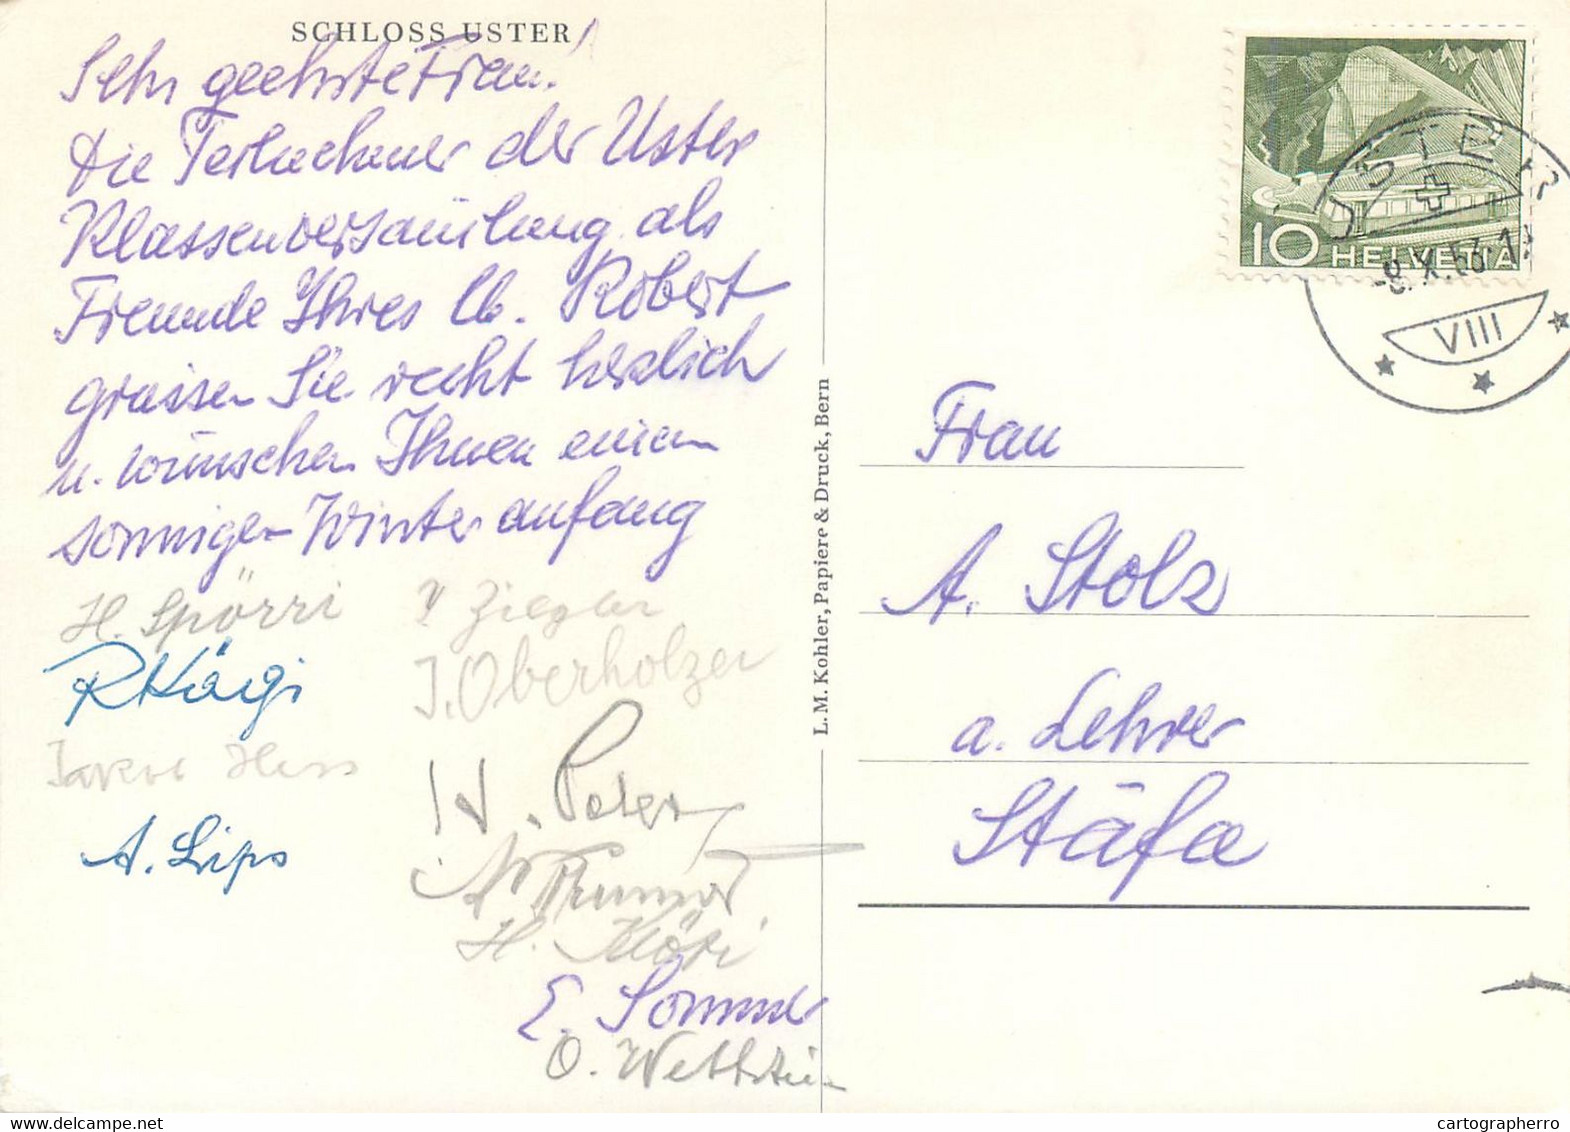 SCHLOSS USTER
Sehr geehrte Frau!
Die Teilnehmer der Uster
Klassenversammlung als
Freunde Ihres lb. Robert
grüssen Sie recht herzlich
u. wünschen Ihnen einen
sonnigen Winteranfang
H. Spörri
Ziegler
R Kägi
J. Oberholzer
Jakob Hess
H. Peter
A. Lips
H. Klöti
E. Sommer
O. Wettstein
L. M. Kohler, Papiere & Druck, Bern
10 HELVETIA
USTER
-8.X.53.
VIII
Frau
A. Stolz
a. Lehrer
Stäfa
cartographerro